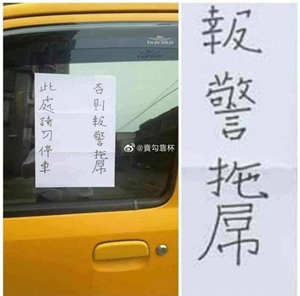 此處請勿停車
否則報警拖屌
@賣勾靠杯
報警拖屌